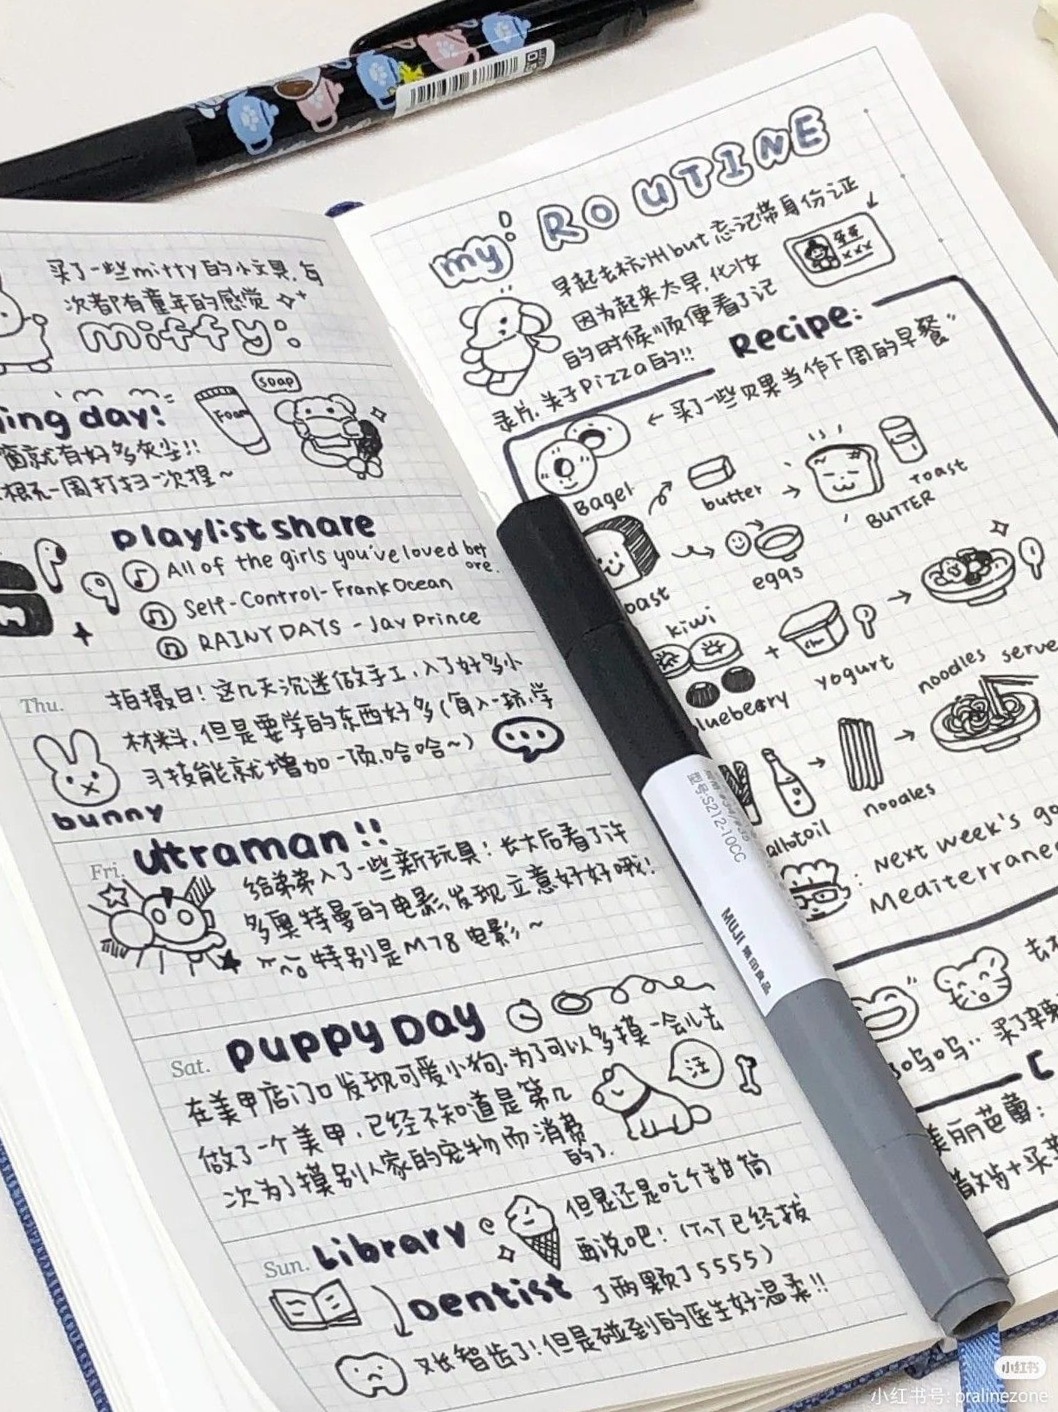 买了一些mitty的小文具,每
次都有童年的感觉
mitty:
ing day!
Foam
soap
窗就有好多灰尘!!
根示一周打扫一次捏~
playlist share
All of the girls you've loved bef
ore.
Self-Control-Frank Ocean
RAINY DAYS - Jay Prince
Thu.
拍摄日!这几天沉迷做手工,入了好多小
材料,但是要学的东西好多(每入一坑,学
习技能就增加一项,哈哈~)
bunny
Fri.
ultraman!!
给弟弟入了一些新玩具!长大后看了许
多奥特曼的电影,发现立意好好哦!
特别是M78电影~
Sat.
puppy Day
在美甲店门口发现可爱小狗.为了可以多摸一会儿去
做了一个美甲,已经不知道是第几
次为了摸别人家的宠物而消费
的了.
汪
Sun.
Library
但是还是吃个甜筒
再说吧!(TAT已经拔
了两颗了5555)
Dentist
又长智齿了!但是碰到的医生好温柔!!
my ROUTINE
早起去杭州but忘记带身份证
因为起来太早,化妆
的时候顺便看了记
录片,关于Pizza的!!
xxx
Recipe:
←买了一些贝果当作下周的早餐"
Bagel
butter
Toast
BUTTER
oast
eggs
kiwi
+
yogurt
lueberry
noodles serve
noodles
alltoil
: Next week's go
Mediterrane
去
呜呜..买了
C
美丽芭蕾:
+买
型号:S212-10CC
MUJI 無印良品
小红书
小红书号: pralinezone